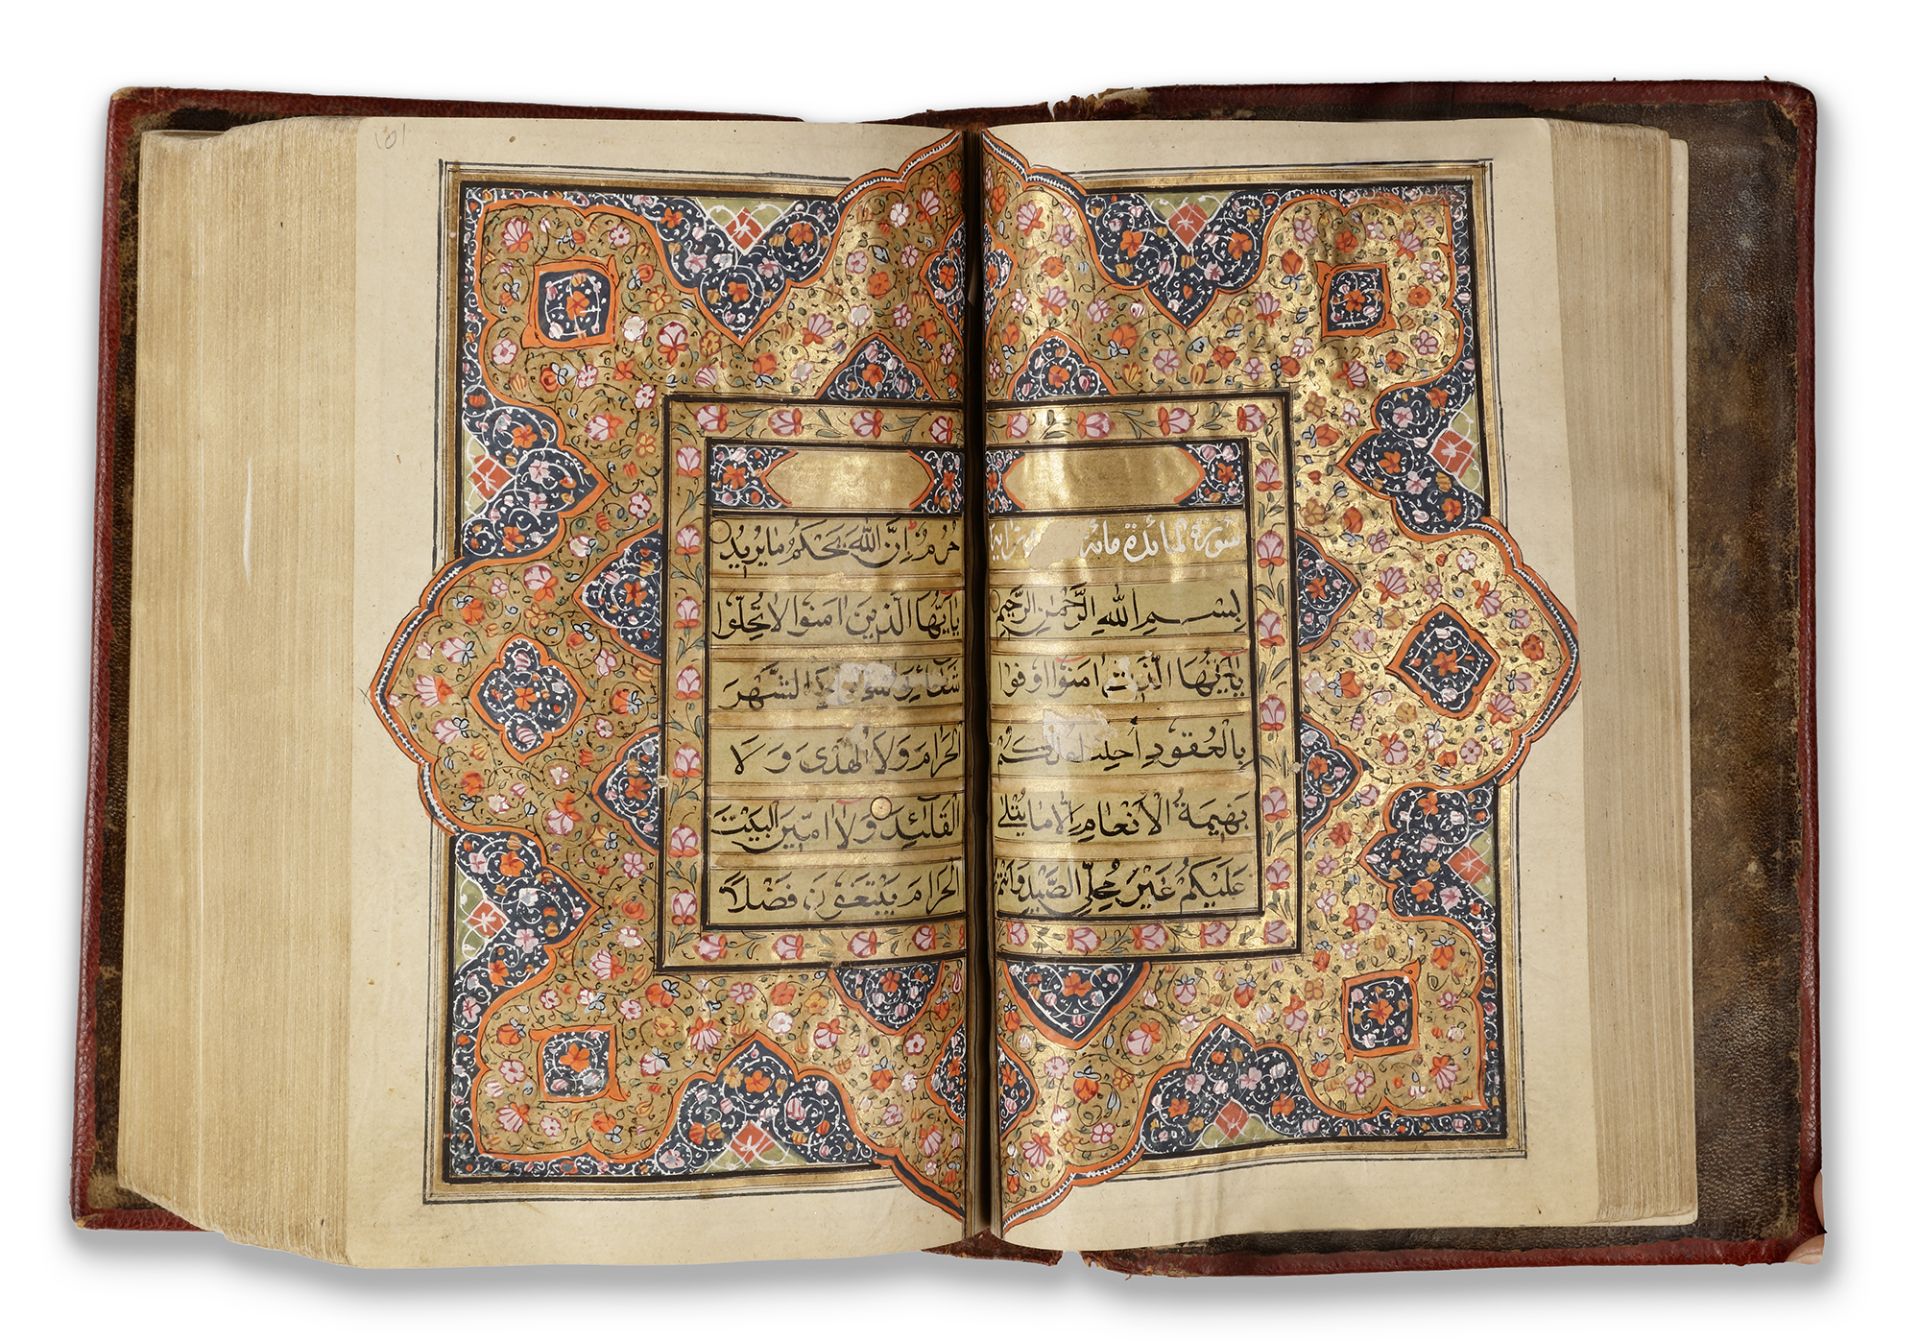 سورة المائدة مائة
بِسْمِ اللهِ الرَّحْمٰنِ الرَّحِيْمِ
يٰاَيُّهَا الَّذِيْنَ اٰمَنُوْا اَوْفُوْا
بِالْعُقُوْدِ اُحِلَّتْ لَكُمْ
بَهِيْمَةُ الْاَنْعَامِ اِلَّا مَا يُتْلٰى
عَلَيْكُمْ غَيْرَ مُحِلِّى الصَّيْدِ وَاَنْتُمْ
حُرُمٌ اِنَّ اللهَ يَحْكُمُ مَا يُرِيْدُ
يٰاَيُّهَا الَّذِيْنَ اٰمَنُوْا لَا تُحِلُّوْا
شَعَائِرَ الشَّهْرَ
الْحَرَامَ وَلَا الْهَدْىَ وَلَا
الْقَلَآئِدَ وَلَا اٰمِّيْنَ الْبَيْتَ
الْحَرَامَ يَبْتَغُوْنَ فَضْلًا